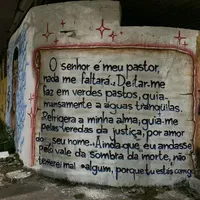 O senhor é meu pastor,
nada me faltará. Deitar-me
faz em verdes pastos, guia-
mansamente a águas tranquilas.
Refrigera a minha alma; guia-me
pelas veredas da justiça, por amor
do seu nome. Ainda que eu andasse
pelo vale da sombra da morte, não
temerei mal algum, porque tu estás comigo